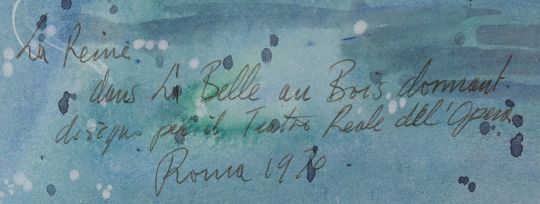 La Reine
dans La Belle au Bois dormant
disegno per il Teatro Reale dell'Opera
Roma 1970